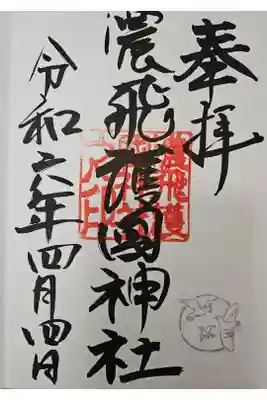 奉拝
濃飛護國神社
令和六年四月四日